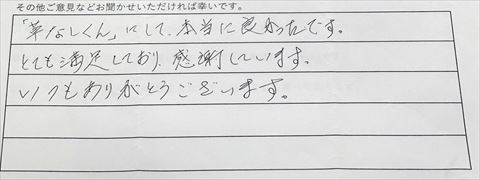 その他ご意見などお聞かせいただければ幸いです。
「草なしくん」にして、本当に良かったです。
とても満足しており、感謝しています。
いつもありがとうございます。